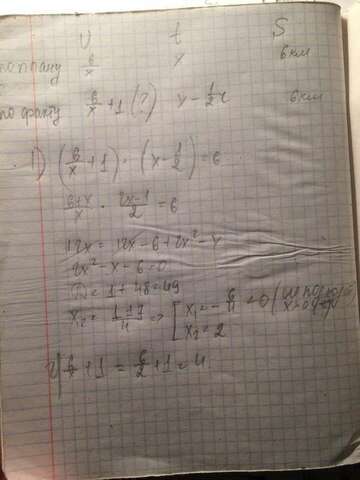 v t S
по плану 6/x x 6 км
по факту 6/x + 1 (?) x - 1/2 ч 6 км
1) (6/x + 1) · (x - 1/2) = 6
6+x/x · 2x-1/2 = 6
12x = 12x - 6 + 2x² - x
2x² - x - 6 = 0
D = 1 + 48 = 49
x₂ = 1+7/4 => [ x₁ = - 6/4
x₂ = 2
2) 6/x + 1 = 6/2 + 1 = 4